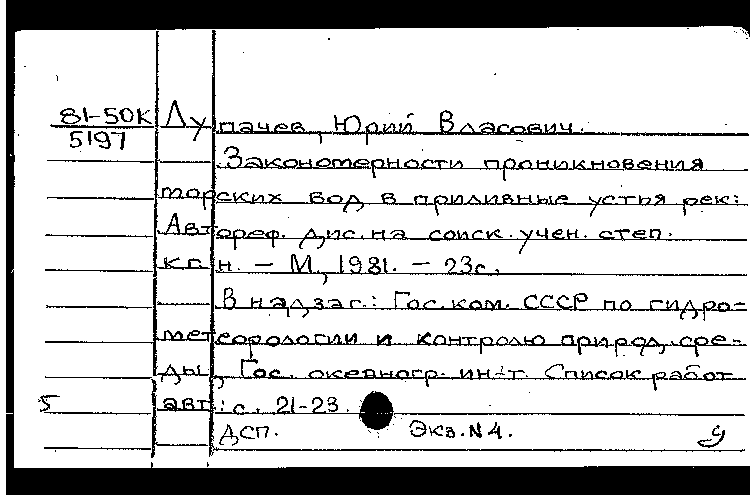 81-50К Лупачев, Юрий Власович.
5197
Закономерности проникновения
морских вод в приливные устья рек:
Автореф. дис. на соиск. учен. степ.
к.г.н. - М., 1981. - 23с.
В надзаг.: Гос. ком. СССР по гидро-
метеорологии и контролю природ. сре-
ды, Гос. океаногр. ин-т. Список работ
5 авт.: с. 21-23.
ДСП. Экз. N 4.